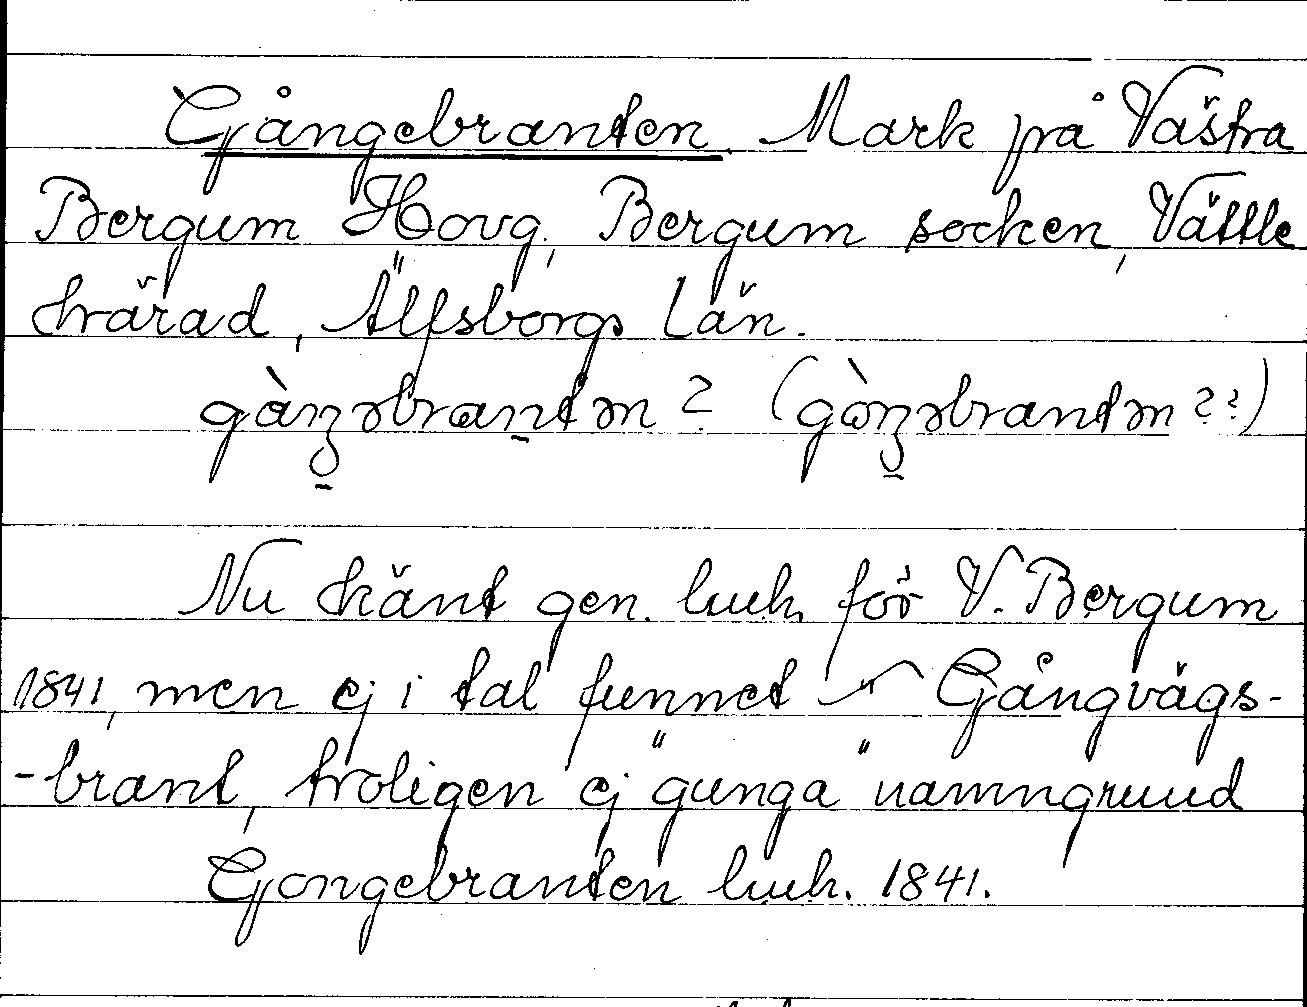 Gångebranten. Mark på Västra
Bergum Hovg, Bergum socken, Vättle
härad, Älfsborgs län.
gàŋəbrantən ? (gòŋəbrantən ??)
Nu känt gen. luuh. för V. Bergum
1841, men ej i tal funnet Gångvägs-
-brant, troligen ej "gunga" namngruud
Gongebranten luuh. 1841.